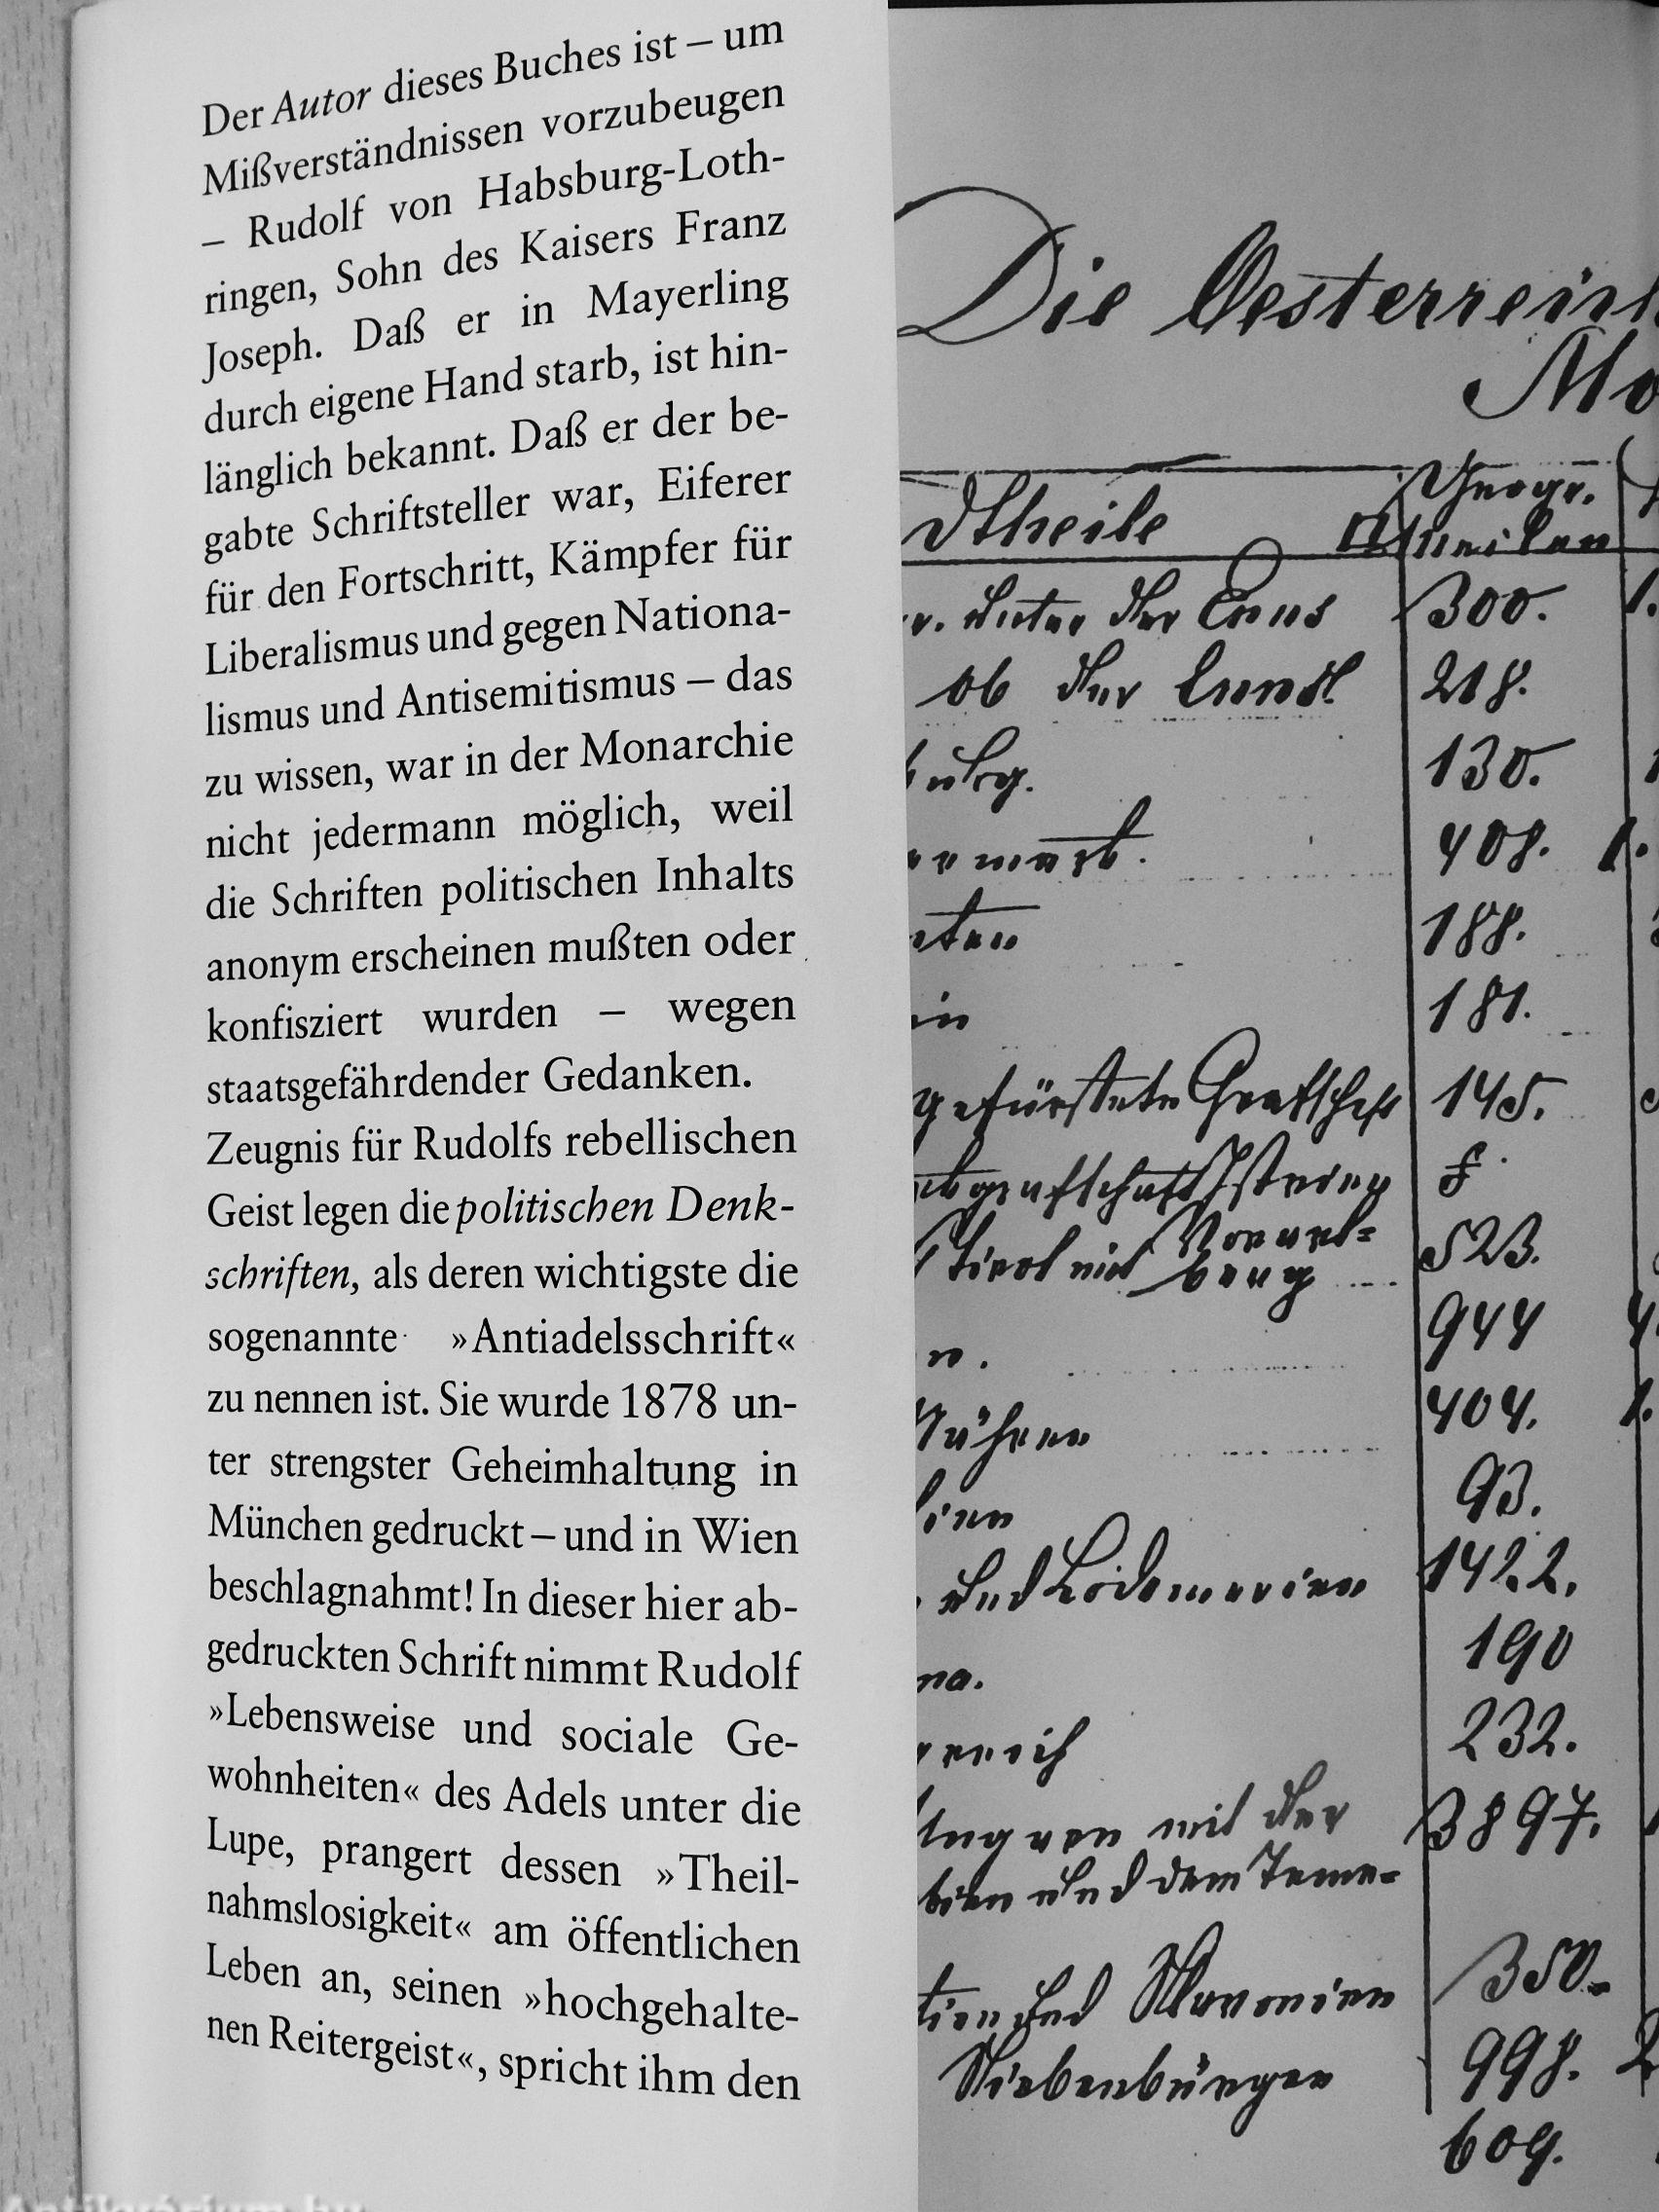 Der Autor dieses Buches ist – um
Mißverständnissen vorzubeugen
– Rudolf von Habsburg-Loth-
ringen, Sohn des Kaisers Franz
Joseph. Daß er in Mayerling
durch eigene Hand starb, ist hin-
länglich bekannt. Daß er der be-
gabte Schriftsteller war, Eiferer
für den Fortschritt, Kämpfer für
Liberalismus und gegen Nationa-
lismus und Antisemitismus – das
zu wissen, war in der Monarchie
nicht jedermann möglich, weil
die Schriften politischen Inhalts
anonym erscheinen mußten oder
konfisziert wurden – wegen
staatsgefährdender Gedanken.
Zeugnis für Rudolfs rebellischen
Geist legen die politischen Denk-
schriften, als deren wichtigste die
sogenannte »Antiadelsschrift«
zu nennen ist. Sie wurde 1878 un-
ter strengster Geheimhaltung in
München gedruckt – und in Wien
beschlagnahmt! In dieser hier ab-
gedruckten Schrift nimmt Rudolf
»Lebensweise und sociale Ge-
wohnheiten« des Adels unter die
Lupe, prangert dessen »Theil-
nahmslosigkeit« am öffentlichen
Leben an, seinen »hochgehalte-
nen Reitergeist«, spricht ihm den
Die Oesterreich
Mo
dtheile Geogr.
Meilen
unter der Enns 300.
ob der Enns 218.
burg. 130.
ermark. 408.
nten 188.
in 181.
gefürstete Grafschaft 145.
Istrien
Tirol mit Vorarl=
berg 523.
n. 944
Mähren 404.
sien 93.
und Lodomerien 1422.
na. 190
reich 232.
Ungarn mit der 3897.
und dem Teme=
tien und Slavonien 350.
Siebenbürgen 998.
609.